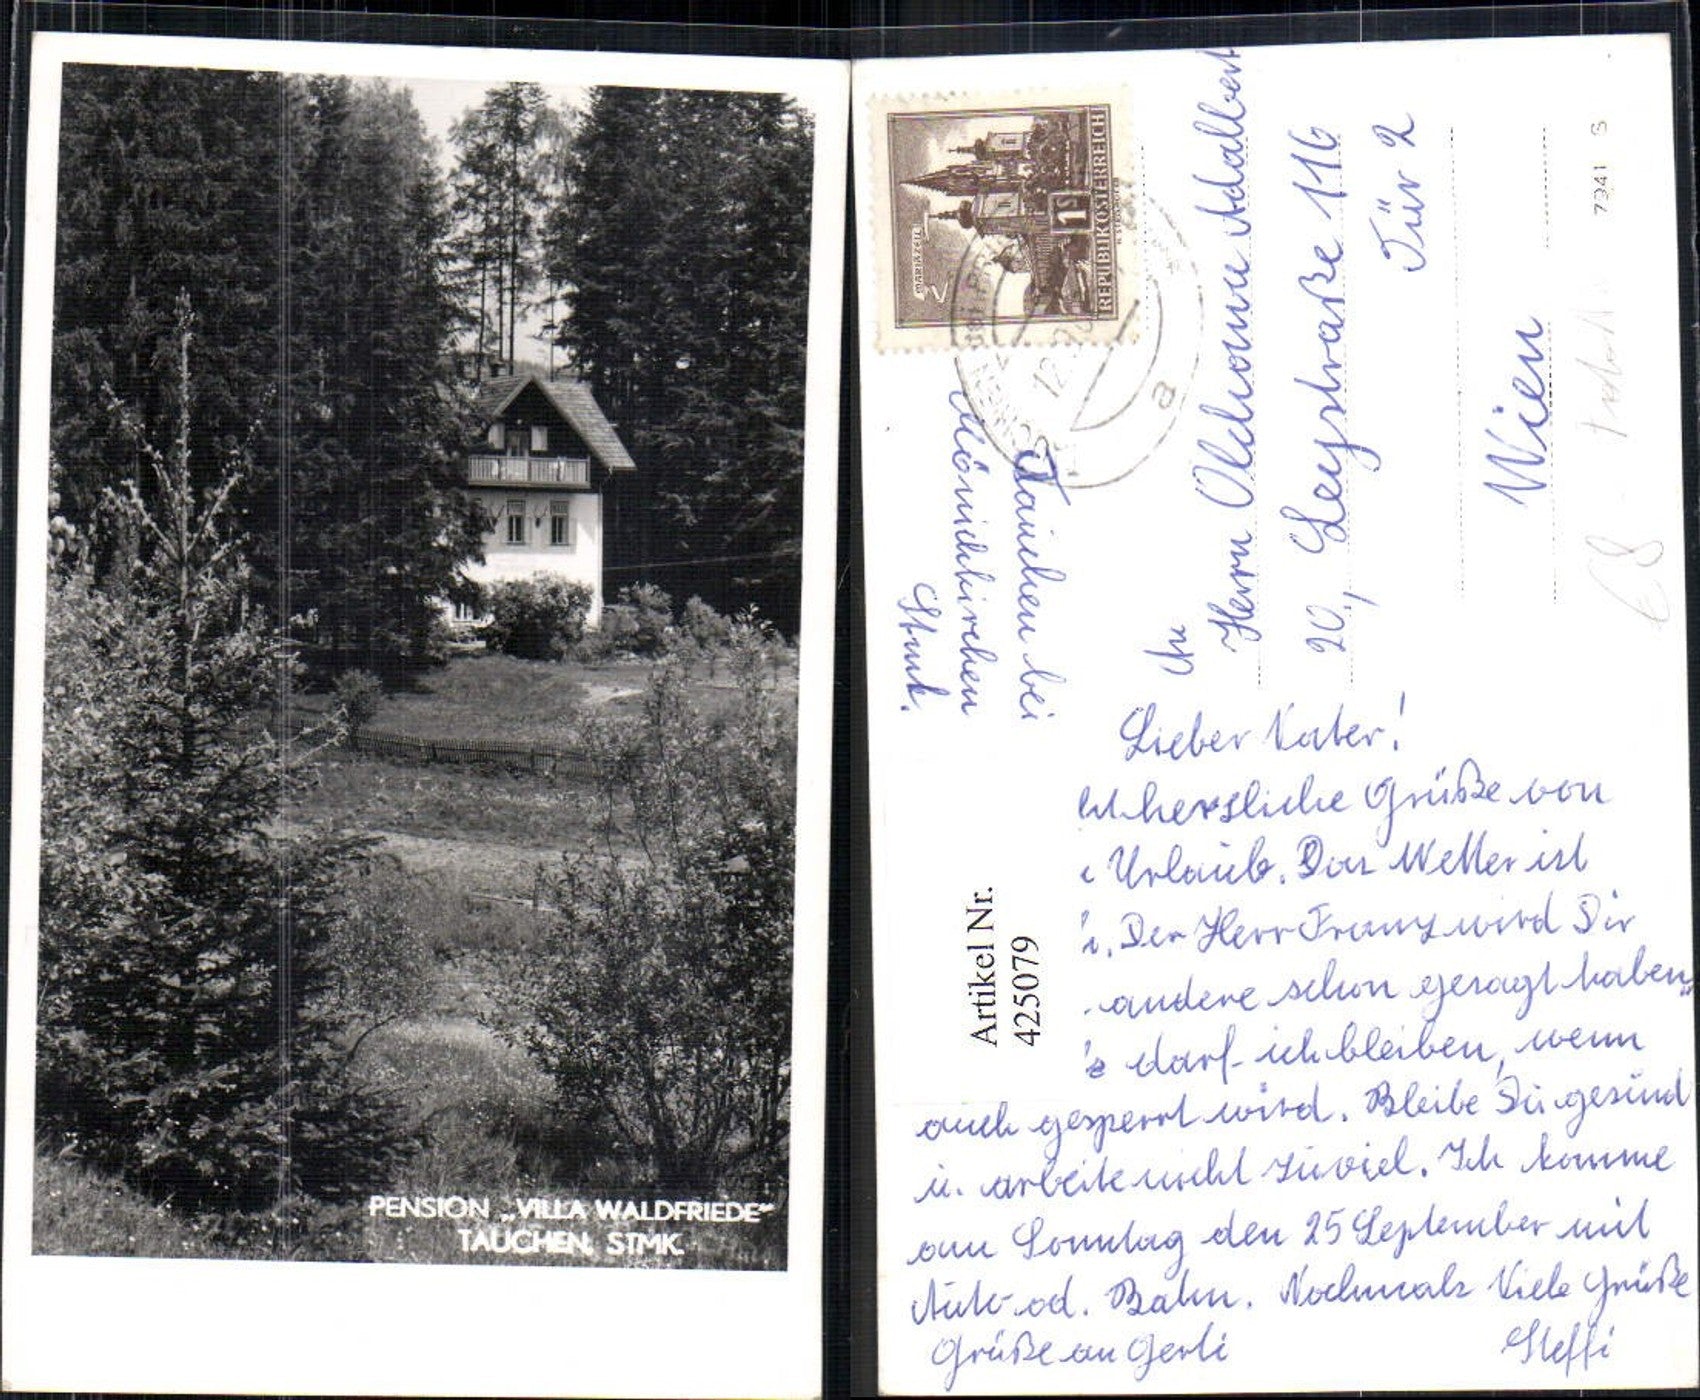 PENSION „VILLA WALDFRIEDE“
TAUCHEN, STMK.
REPUBLIK ÖSTERREICH
MARIAZELL
1S
a
Tauchen bei
Mönichkirchen
Stmk.
An
Herrn Oldhomu Adalbert
20., Leystraße 116
Tür 2
Wien
7341 S
€8
Artikel Nr.
425079
Lieber Vater!
herzliche Grüße von
Urlaub. Das Wetter ist
Der Herr Franz wird Dir
andere schon gesagt haben,
darf ich bleiben, wenn
auch gesperrt wird. Bleibe Du gesund
u. arbeite nicht zuviel. Ich komme
am Sonntag den 25 September mit
Auto od. Bahn. Nochmals Viele Grüße
Grüße an Gerti
Steffi